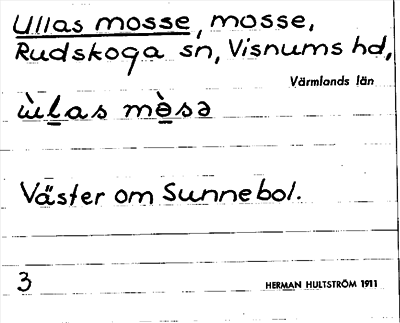 Ullas mosse, mosse,
Rudskoga sn, Visnums hd,
Värmlands län
ɯ̀l̠as mɵ̠̀sə
Väster om Sunnebol.
3
HERMAN HULTSTRÖM 1911